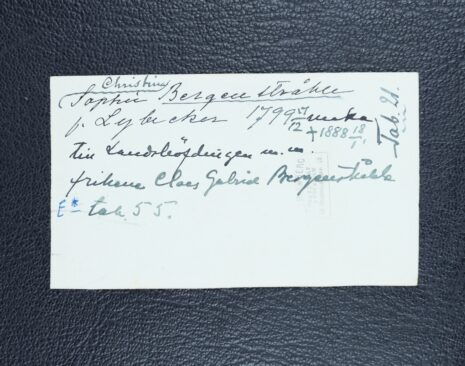 Christina
Sophie Bergenstråhle
f. Lybecker 1799 7/12 maka
+ 1888 18/1.
Tab. 21.
till Landshöfdingen m.m.
friherre Claes Gabriel Bergenstråhle
E* tab. 55.